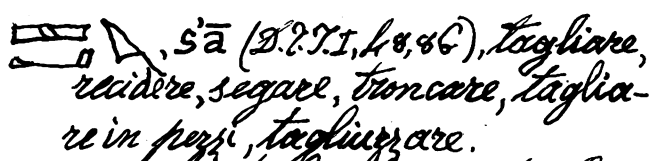 , s'ā (D.Z.T.I, 48,86), tagliare,
recidere, segare, troncare, taglia-
re in pezzi, tagliuzzare.